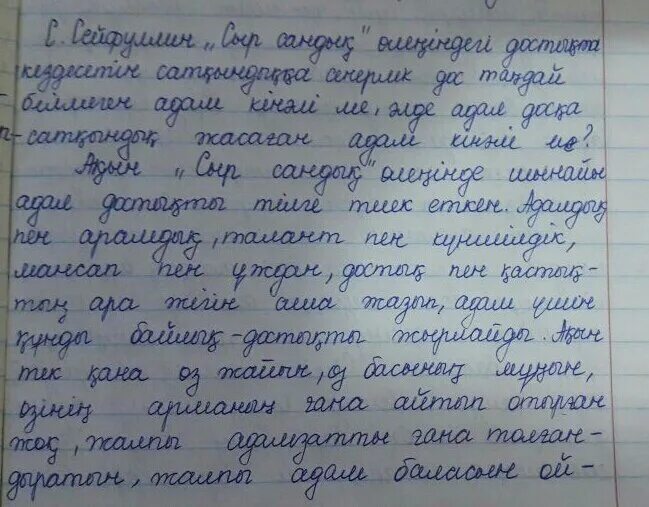 С. Сейфуллин „Сыр сандық" өлеңіндегі достықта
кездесетін сатқындыққа сенерлік дос таңдай
білмеген адам кінәлі ме, әлде адал досқа
сатқындық жасаған адам кінәлі ме?
Ақын „Сыр сандық" өлеңінде шынайы
адал достықты тілге тиек еткен. Адалдық
пен арамдық, талант пен күншілдік,
мансап пен ұждан, достық пен қастық-
тың ара жігін аша жазып, адам үшін
құнды байлық - достықты жырлайды. Ақын
тек қана өз жайын, өз басының мұңын,
өзінің арманың ғана айтып отырған
жоқ, жалпы адамзатты ғана толған-
дыратын, жалпы адам баласын ой-